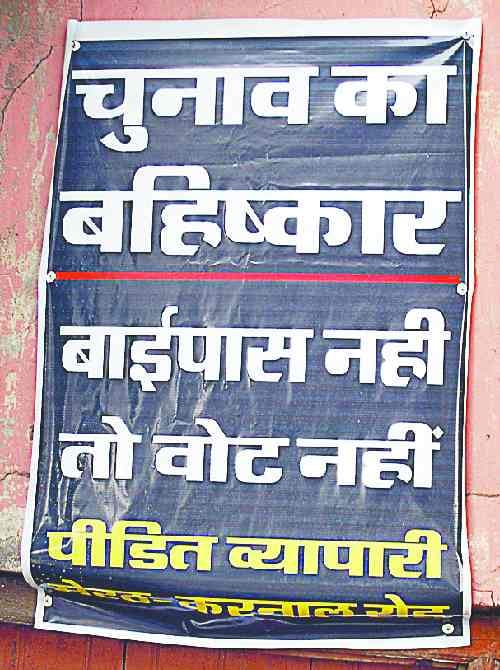 चुनाव का
बहिष्कार
बाईपास नही
तो वोट नहीं
पीडित व्यापारी
मेरठ-करनाल रोड